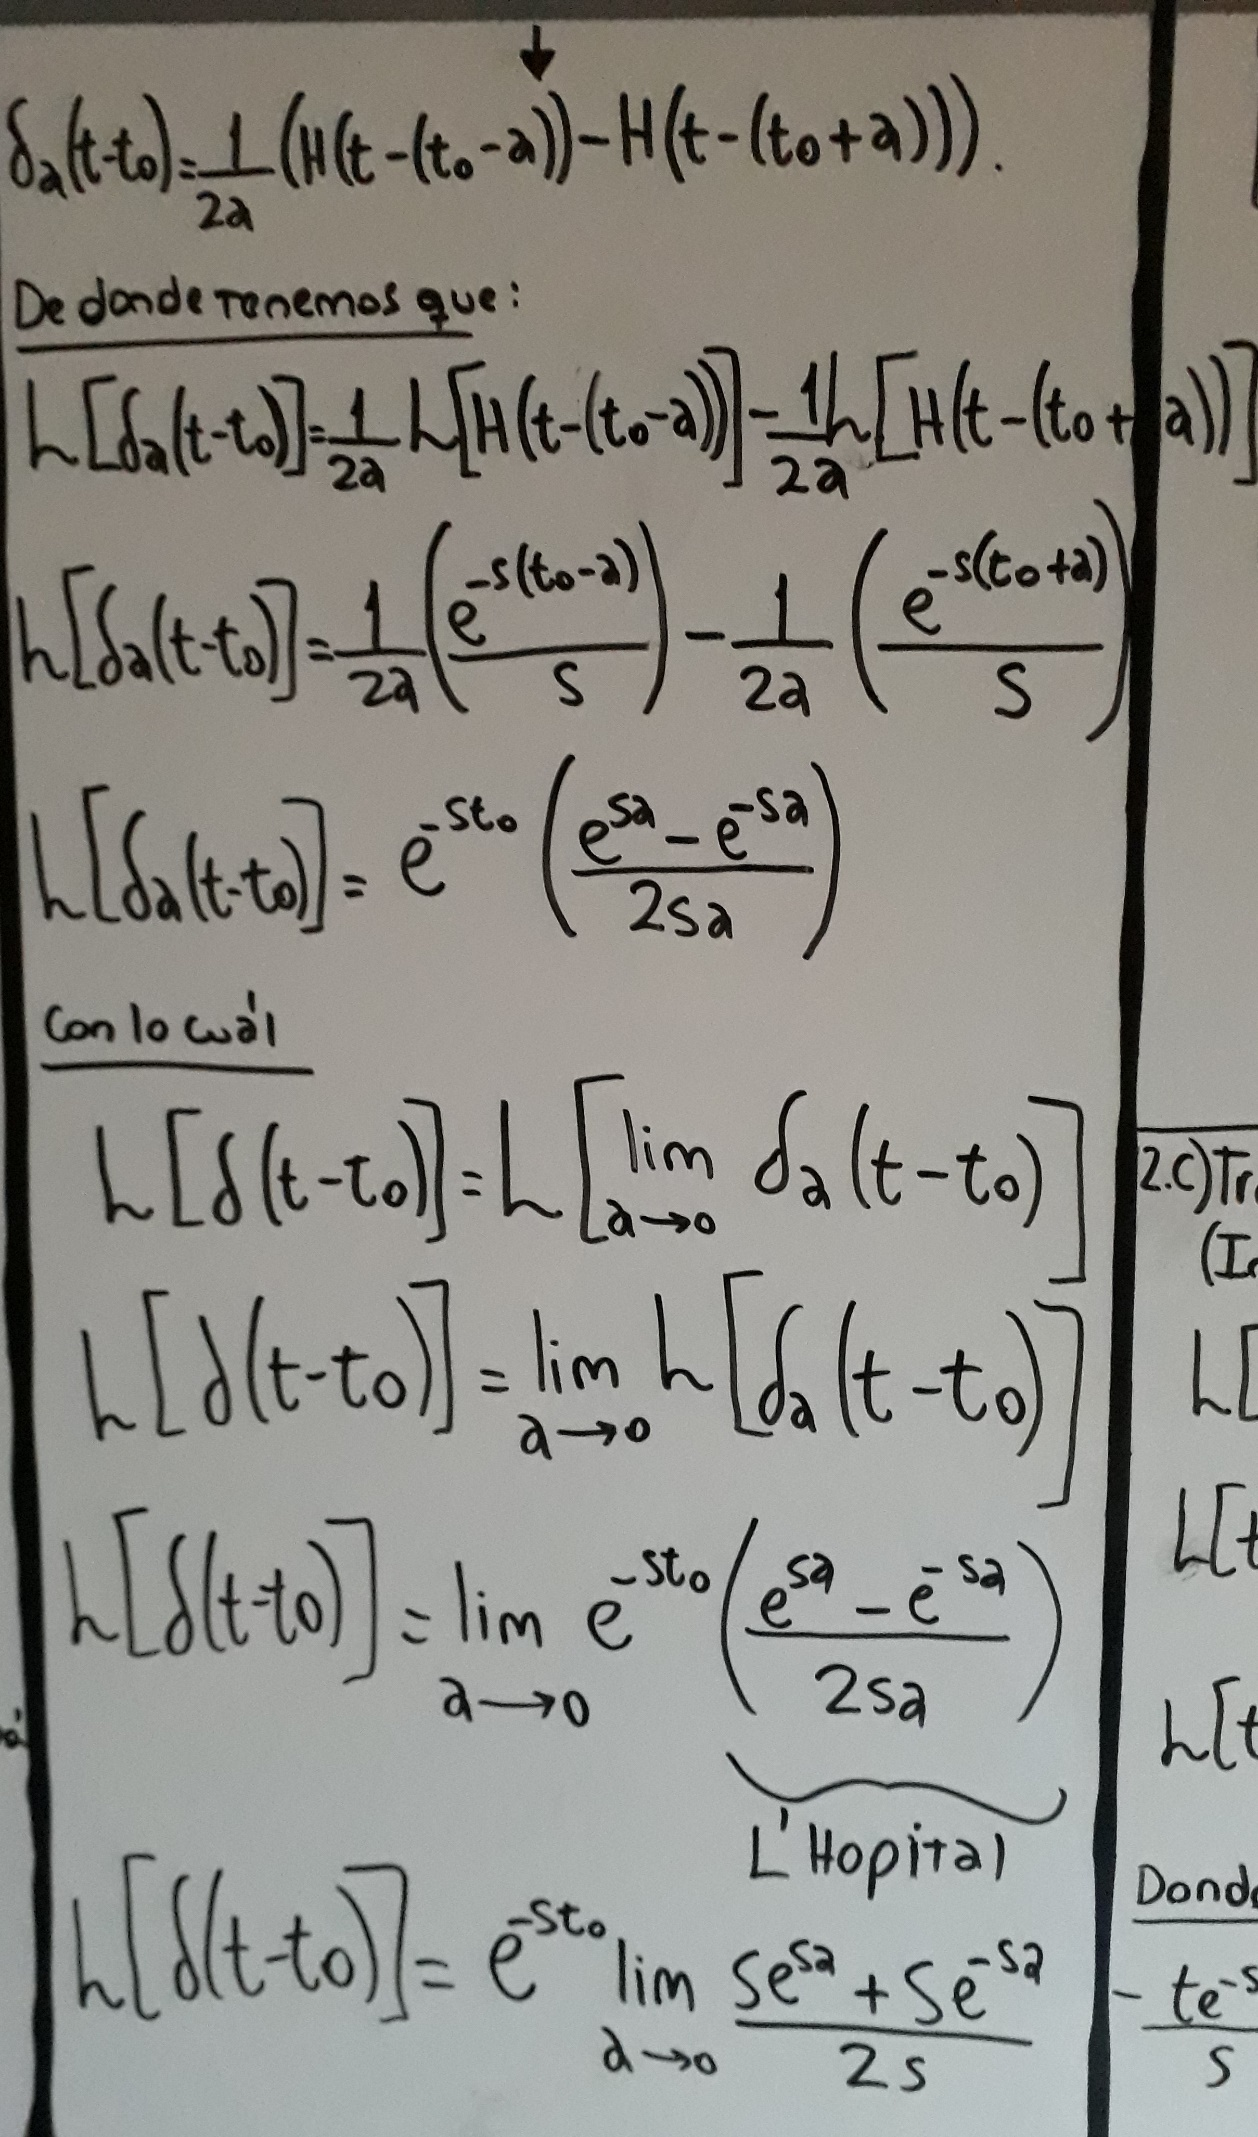 ↓
δa(t-t₀)=1/2a (H(t-(t₀-a))-H(t-(t₀+a))).
De donde tenemos que:
L[δa(t-t₀)]=1/2a L[H(t-(t₀-a))]-1/2a L[H(t-(t₀+a))]
L[δa(t-t₀)]=1/2a (e^(-s(t₀-a))/s) - 1/2a (e^(-s(t₀+a))/s)
L[δa(t-t₀)]= e^(-st₀) ((e^(sa) - e^(-sa))/2sa)
Con lo cuál
L[δ(t-t₀)]=L[lim a→0 δa(t-t₀)]
L[δ(t-t₀)]=lim a→0 L[δa(t-t₀)]
L[δ(t-t₀)]=lim a→0 e^(-st₀) ((e^(sa) - e^(-sa))/2sa)
L'Hopital
L[δ(t-t₀)]= e^(-st₀) lim a→0 (Se^(sa) + Se^(-sa))/2s
2.C)
L[
L[t
L[t
- te^-s
s